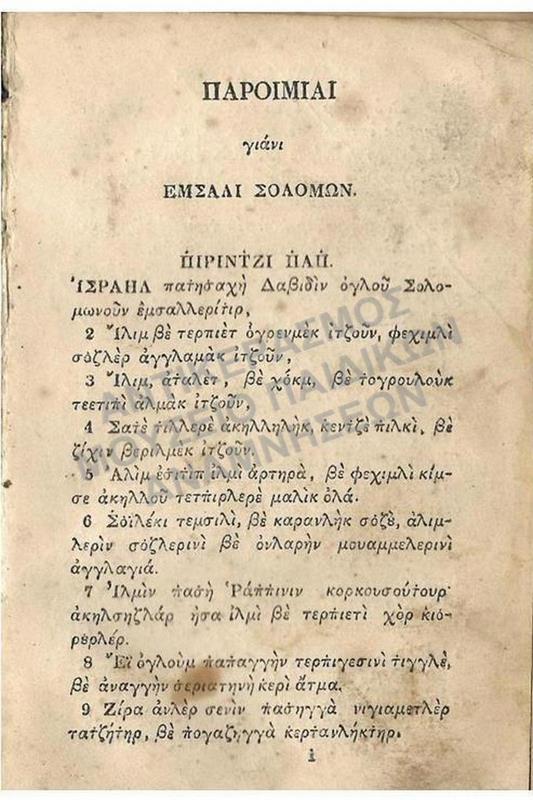 ΠΑΡΟΙΜΙΑΙ
γιάνι
ΕΜΣΑΛΙ ΣΟΛΟΜΩΝ.
ΠΙΡΙΝΤΖΙ ΠΑΠ.
ἸΣΡΑΗΛ πατησαχὴ Δαβιδὶν ὀγλοῦ Σολο-
μωνοῦν ἐμσαλλερίτιρ,
2 Ἴλιμ βὲ τερπιὲτ ὀγοενμὲκ ἰτζοῦν, φεχιμλὶ
σὸζλὲρ ἀγγλαμὰκ ἰτζοῦν,
3 Ἴλιμ, ἀταλὲτ, βὲ χόκμ, βὲ τογρουλοὺκ
τεετιπὶ ἀλμὰκ ἰτζοῦν,
4 Σατὲ τιλλερὲ ἀκηλληλὴκ, κεντζὲ πιλκὶ, βὲ
ζίχιν βεριλμὲκ ἰτζοῦν,
5 Ἀλὶμ ἐσιτιπ ἰλμὶ ἀρτηρὰ, βὲ φεχιμλὶ κίμ-
σε ἀκηλλοῦ τετπιρλερὲ μαλὶκ ὀλά.
6 Σόϊλεκι τεμσιλὶ, βὲ καρανλὴκ σὸζȣ, ἀλιμ-
λερὶν σὸζλερινὶ βὲ ὀνλαρὴν μουαμμελερινὶ
ἀγγλαγιά.
7 Ἰλμὶν πασὴ Ῥάππινιν κορκουσούτουρ·
ἀκηλσηζλὰρ ἠσα ἰλμὶ βὲ τερπιετὶ χὸρ κιό-
ρȣρλέρ.
8 Ἔϊ ὀγλοὺμ παπαγγὴν τερπιγεσινὶ τιγγλὲ,
βὲ ἀναγγὴν σεριατηνὴ κερὶ ἄτμα.
9 Ζίρα ἀνλὲρ σενὶν πασηγγὰ νιγιαμετλὲρ
τατζήτηρ, βὲ πογαζηγγὰ κερτανλήκτηρ.
i
ΑΝΤΙΚΕΡΑΣΜΟΣ
ΜΟΥΣΕΙΟ ΠΑΙΔΙΚΩΝ
ΑΝΑΜΝΗΣΕΩΝ